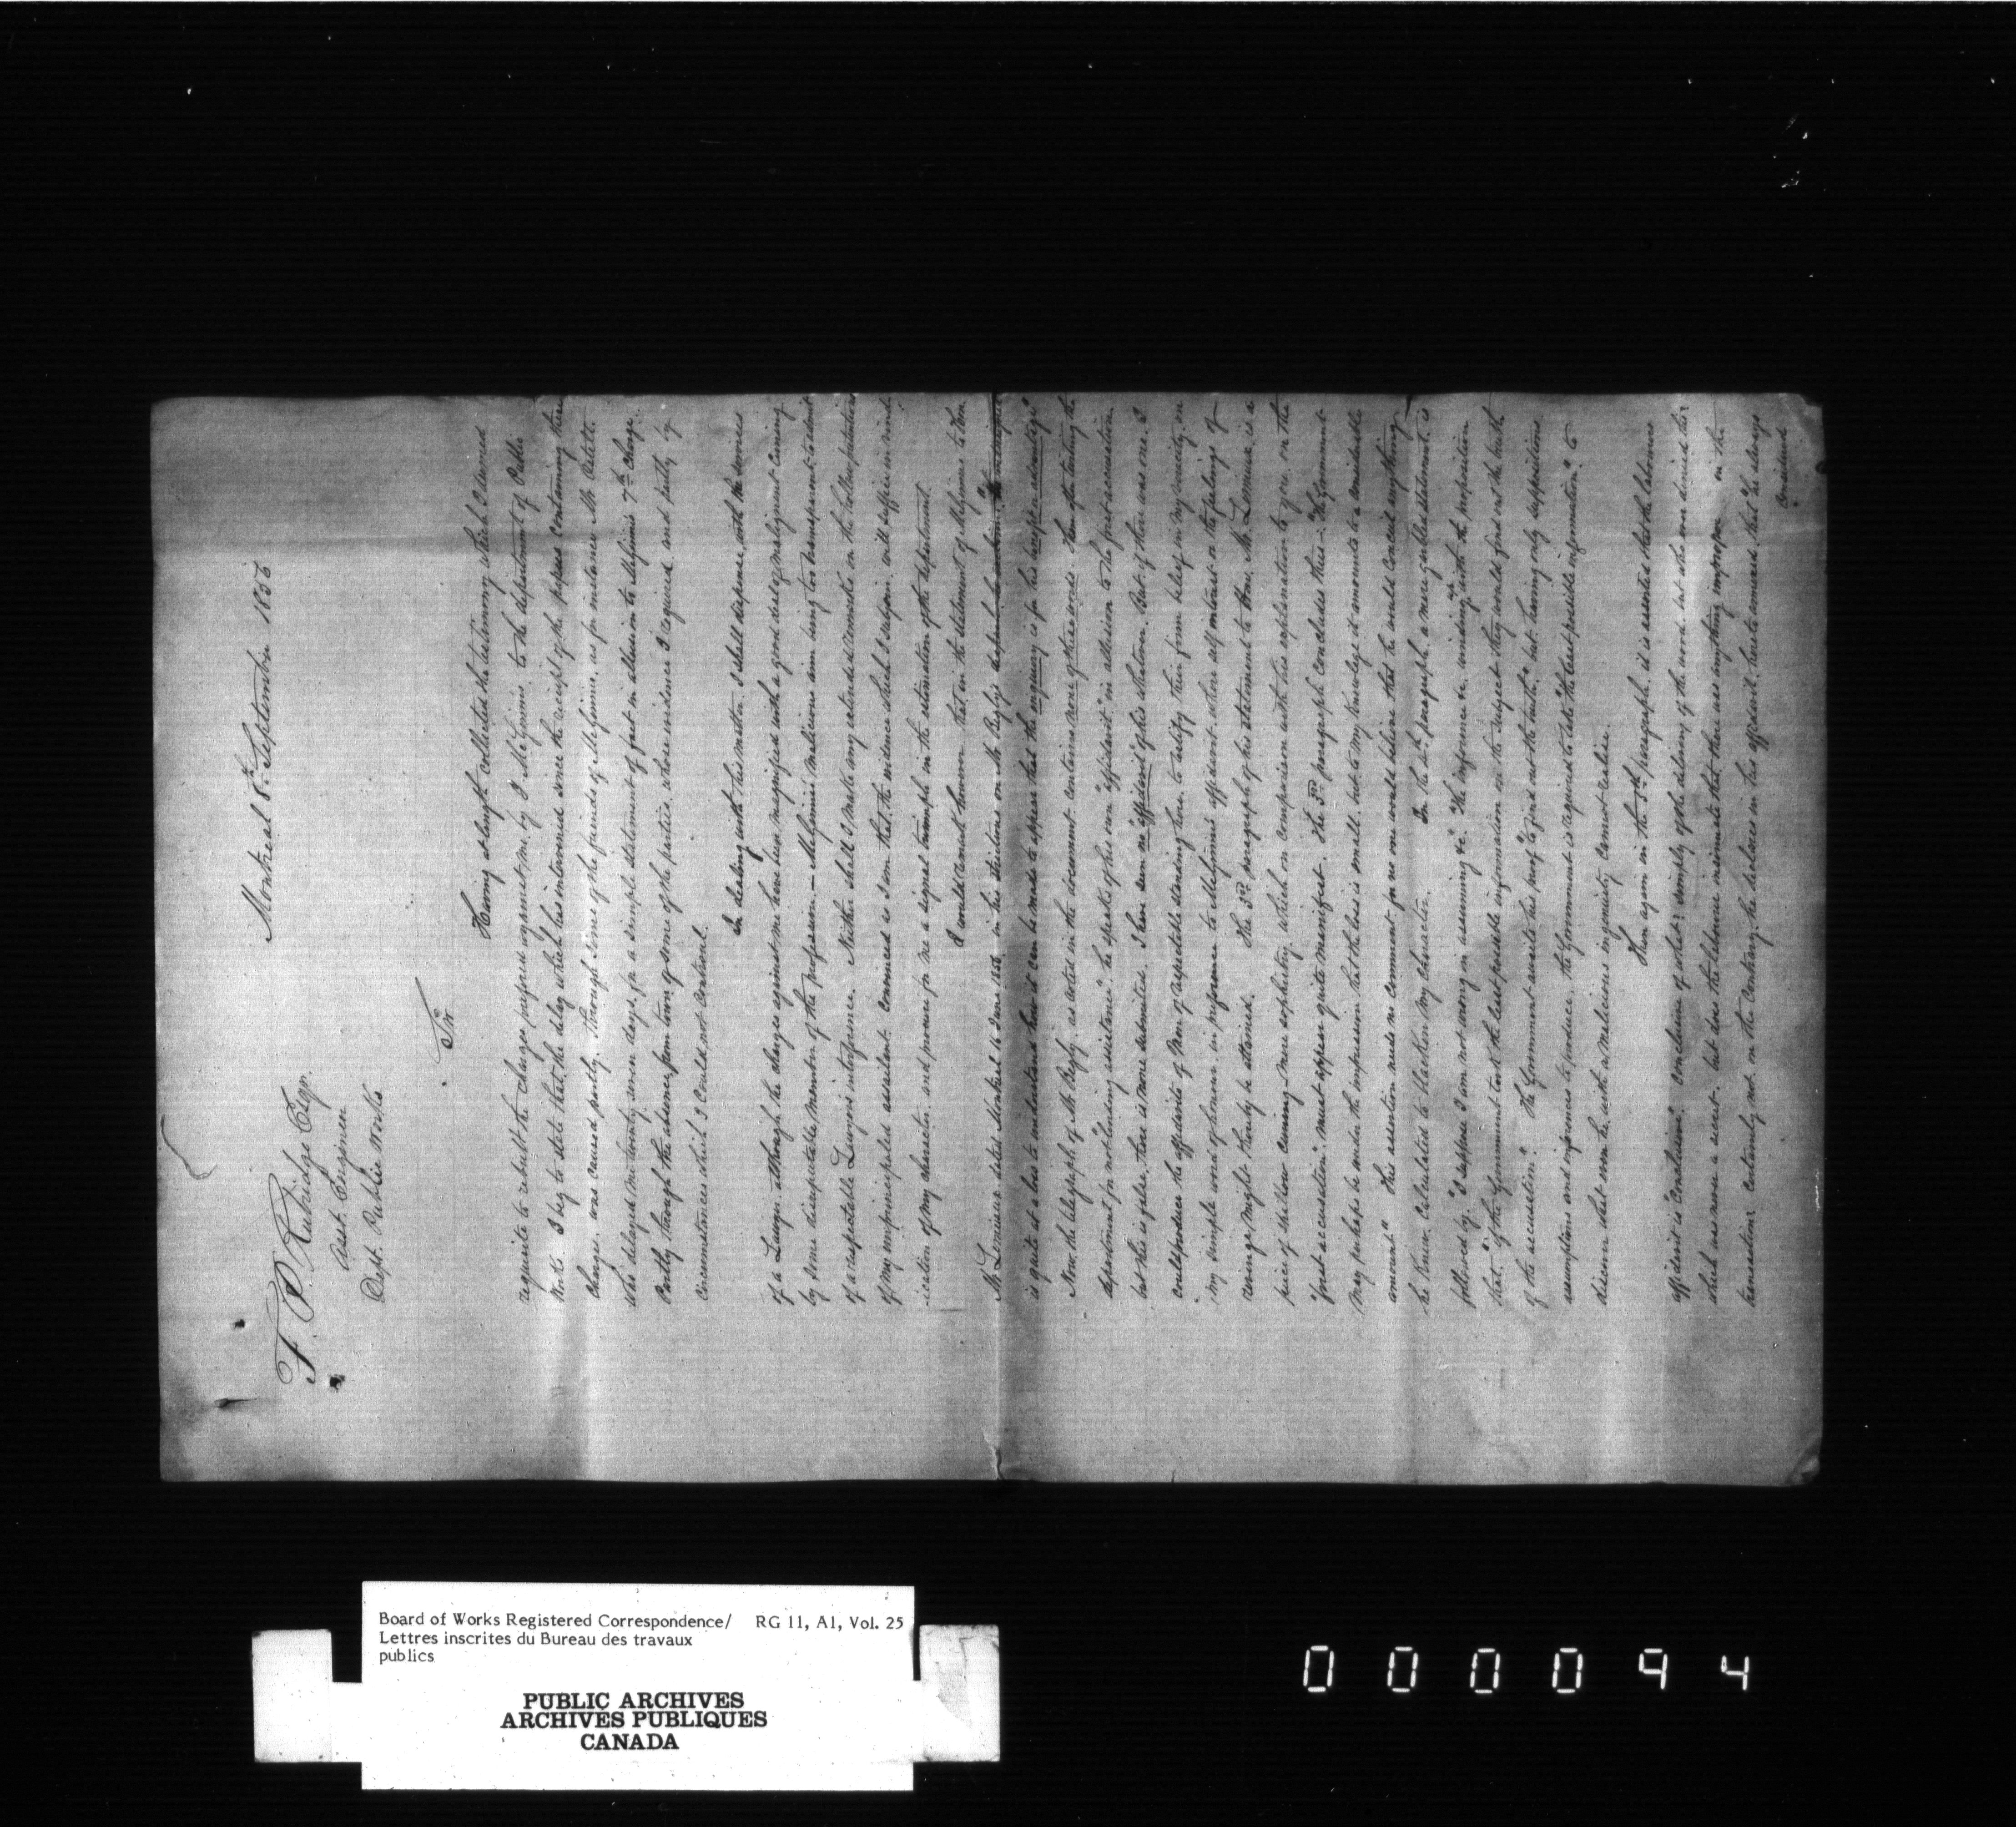 Montreal 8th September 1856
F. P. Rubidge Esqr.
Asst. Engineer
Dept. Public Works
Sir
Having at length collected the testimony which I deemed
requisite to rebutt the charges prefered against me, by J McGinnis, to the department of Public
Works. I beg to state that the delay which has intervened since the receipt of the papers containing these
charges, was caused partly, through some of the friends of McGinnis, as for instance Mr
who delayed me twenty seven days, for a simple statement of fact in allusion to McGinnis 7th Charge.
Partly through the absence from town of some of the parties, whose evidence I required and partly by
Circumstances which I could not control.
In dealing with this matter, I shall dispense with the services
of a Lawyer, although the charges against me have been magnified with a good deal of malignant cunning
by some disreputable member of the profession — McGinnis malicious aim being too transparent to admit
of a respectable Lawyers interference. Neither shall I make any extended comments on the hollow pretentions
of my unprincipled assailant. Convinced as I am that the evidence which I subjoin will suffice in vind-
-ication of my character and procure for me a signal triumph in the estimation of the department.
I would remark however that in the statement of McGinnis to Hon.
Mr Lemieux dated Montreal 16 June 1856, in his strictures on Mr Begly's despatch he
is quite at a loss to understand how it can be made to appear that the enquiry is for his
Now, the telegraph of Mr Begly, as cited in the document contains none of these words. Then after the
department for not "lending assistance", he speaks of his own "affidavit" in allusion to the first accusation
but this is false, there is none submitted. I have seen no "affidavit" of his whatever. But if there was one I
could produce the affidavits of Men of respectable standing here, to testify their firm belief in my veracity, on
my simple word of honour, in preference to McGinnis affidavit where self interest or the feelings of
revenge, might thereby be attained. The 3rd paragraph of his statement to Hon. Mr. Lemieux, is a
piece of shallow cunning – mere sophistry, which on comparison with his explanation to you on the
"first accusation" must appear quite manifest. The 3rd paragraph concludes thus – "The Government
may perhaps be under the impression that the loss is small, but to my knowledge it amounts to a considerable
amount" This assertion needs no comment for no one would believe that he would conceal anything
he knew, calculated to blacken my character. In the 4th paragraph, a mere garbled statement is
followed by, "I suppose I am not wrong in assuming &c" "The inference &c. winding up with the proposition
that, "if the Government took the best possible information on the subject they would find out the truth
of the accusation". The Government awaits his proof "to find out the truth", but having only suppositions,
assumptions and inferences to produce, the Government is required to take "the best possible information", to
discern what even he, with a malicious ingenuity cannot realise.
Then again in the 5th paragraph, it is asserted that the laborers
affidavit is "Conclusive". conclusive of what? simply of the delivery of the wood, but who ever denied this
which was never a secret, but does the laborer insinuate that there was anything improper in the
transaction, Certainly not, on the Contrary, he declares in his affidavit, hereto annexed, that "he always
Considered
Board of Works Registered Correspondence/ RG 11, A1, Vol. 25
Lettres inscrites du Bureau des travaux
publics
PUBLIC ARCHIVES
ARCHIVES PUBLIQUES
CANADA
0 0 0 0 9 4